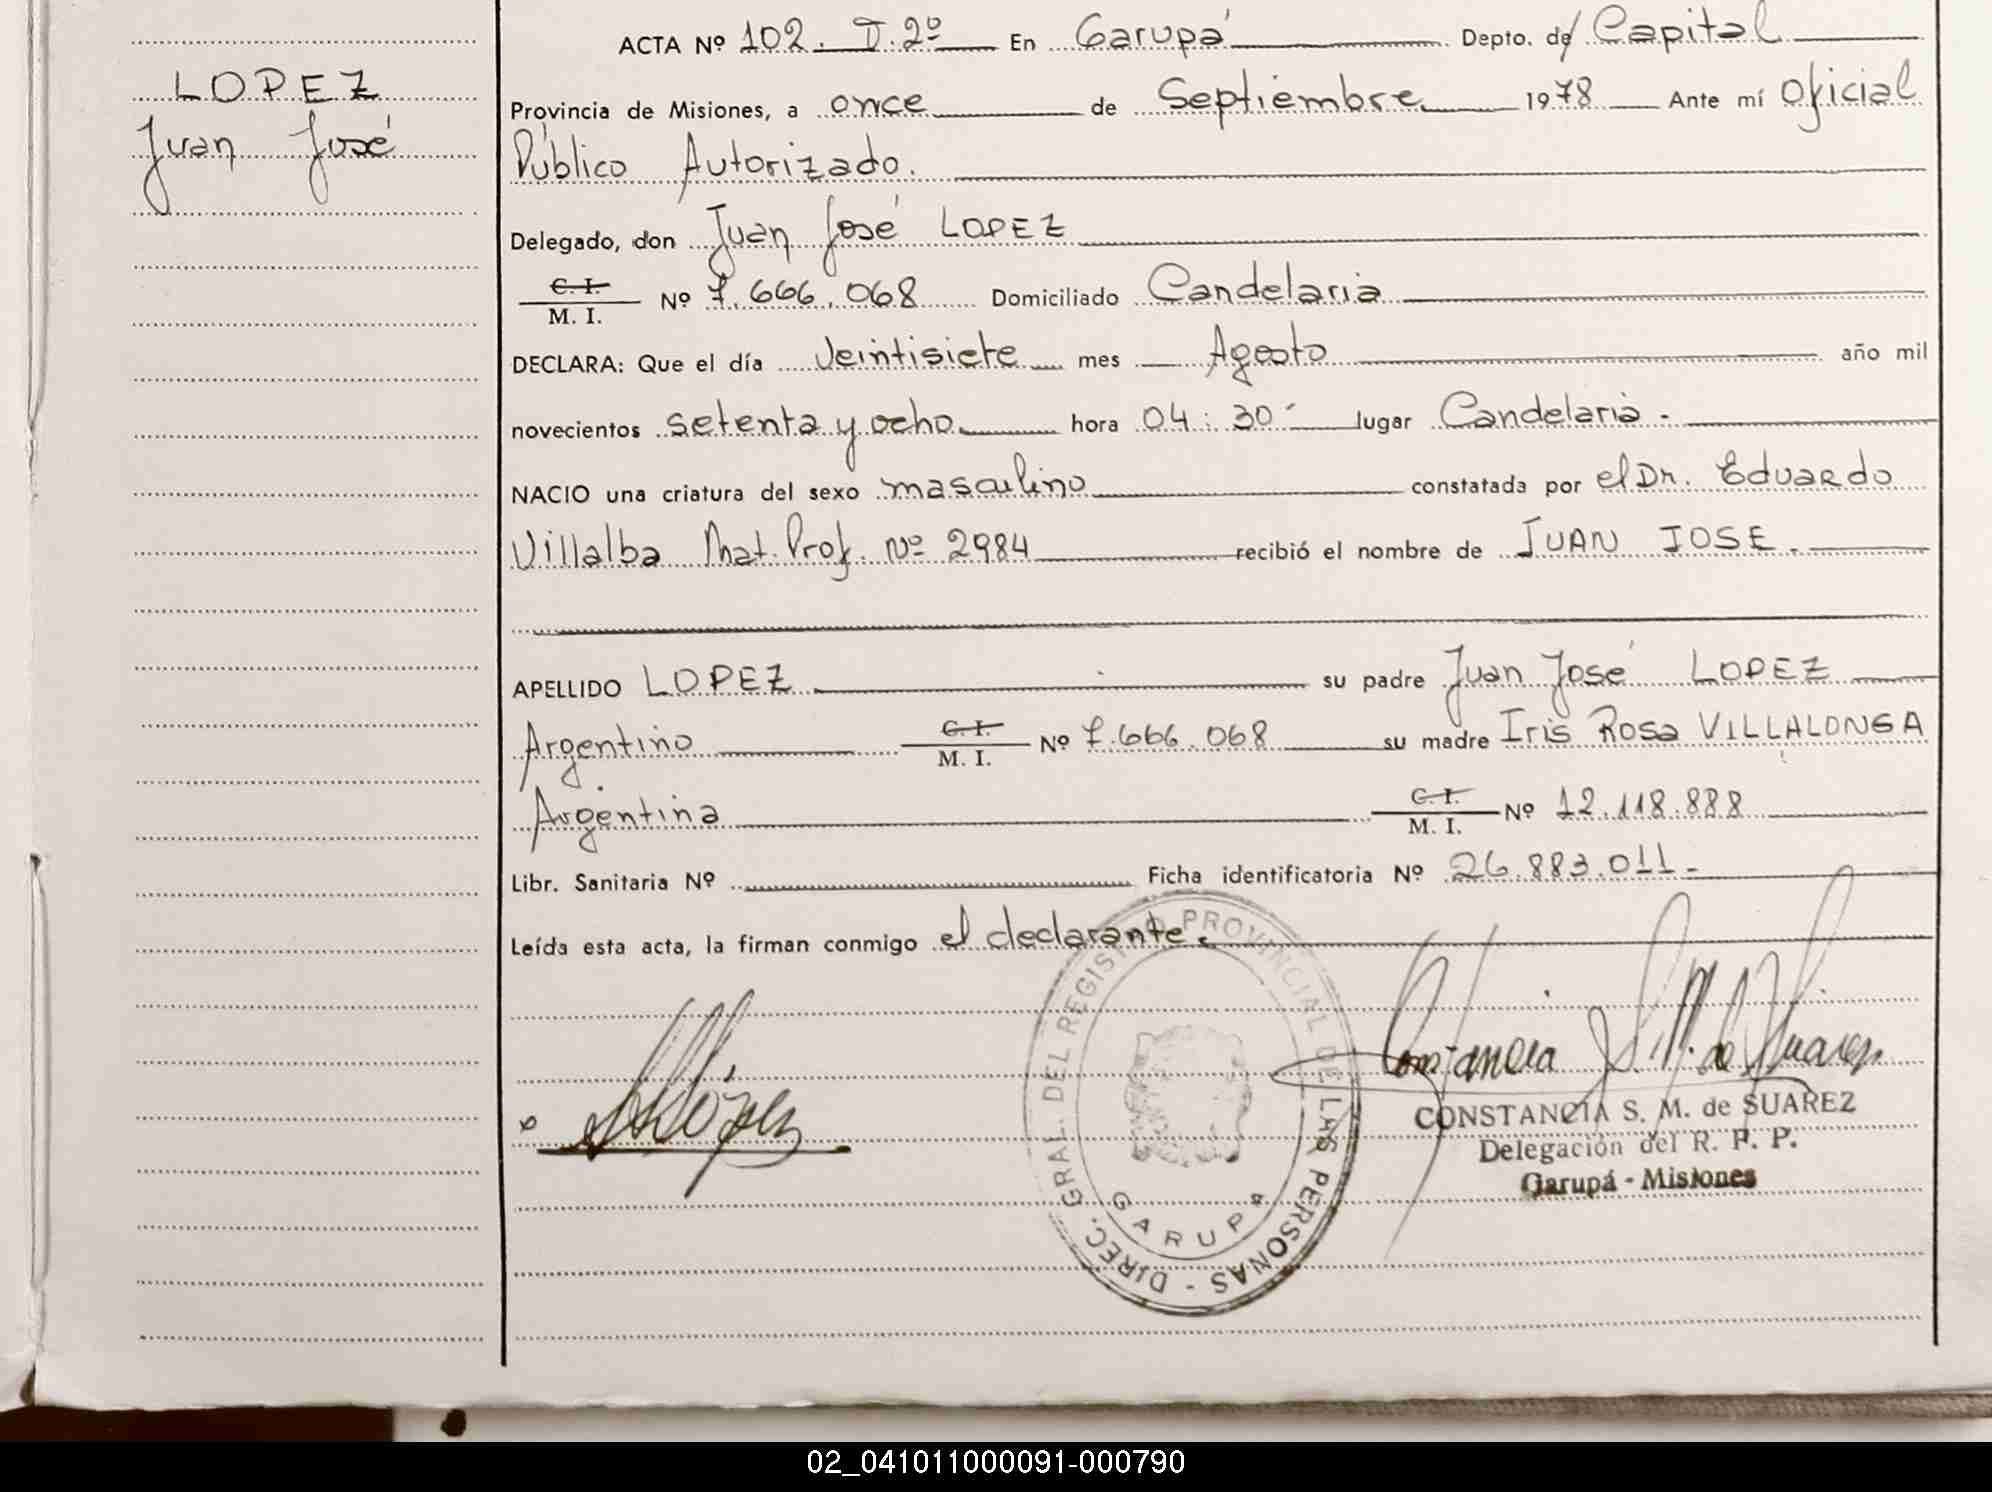 LOPEZ
Juan José
ACTA Nº 102. T. 2º En Garupá Depto. de Capital
Provincia de Misiones, a once de Septiembre 1978 Ante mí Oficial
Público Autorizado.
Delegado, don Juan José LOPEZ
C. I.
M. I. Nº 7.666.068 Domiciliado Candelaria
DECLARA: Que el día veintisiete mes Agosto año mil
novecientos setenta y ocho hora 04:30 lugar Candelaria.-
NACIO una criatura del sexo masculino constatada por el Dr. Eduardo
Villalba Mat. Prof. Nº 2984 recibió el nombre de JUAN JOSE.
APELLIDO LOPEZ su padre Juan José LOPEZ
Argentino C. I.
M. I. Nº 7.666.068 su madre Iris Rosa VILLALONGA
Argentina C. I.
M. I. Nº 12.118.888
Libr. Sanitaria Nº Ficha identificatoria Nº 26.883.011-
Leída esta acta, la firman conmigo el declarante.
x López
DIREC. GRAL. DEL REGISTRO PROVINCIAL DE LAS PERSONAS -
GARUPA
Constancia S. M. de Suarez
CONSTANCIA S. M. de SUAREZ
Delegación del R. P. P.
Garupá - Misiones
02_041011000091-000790